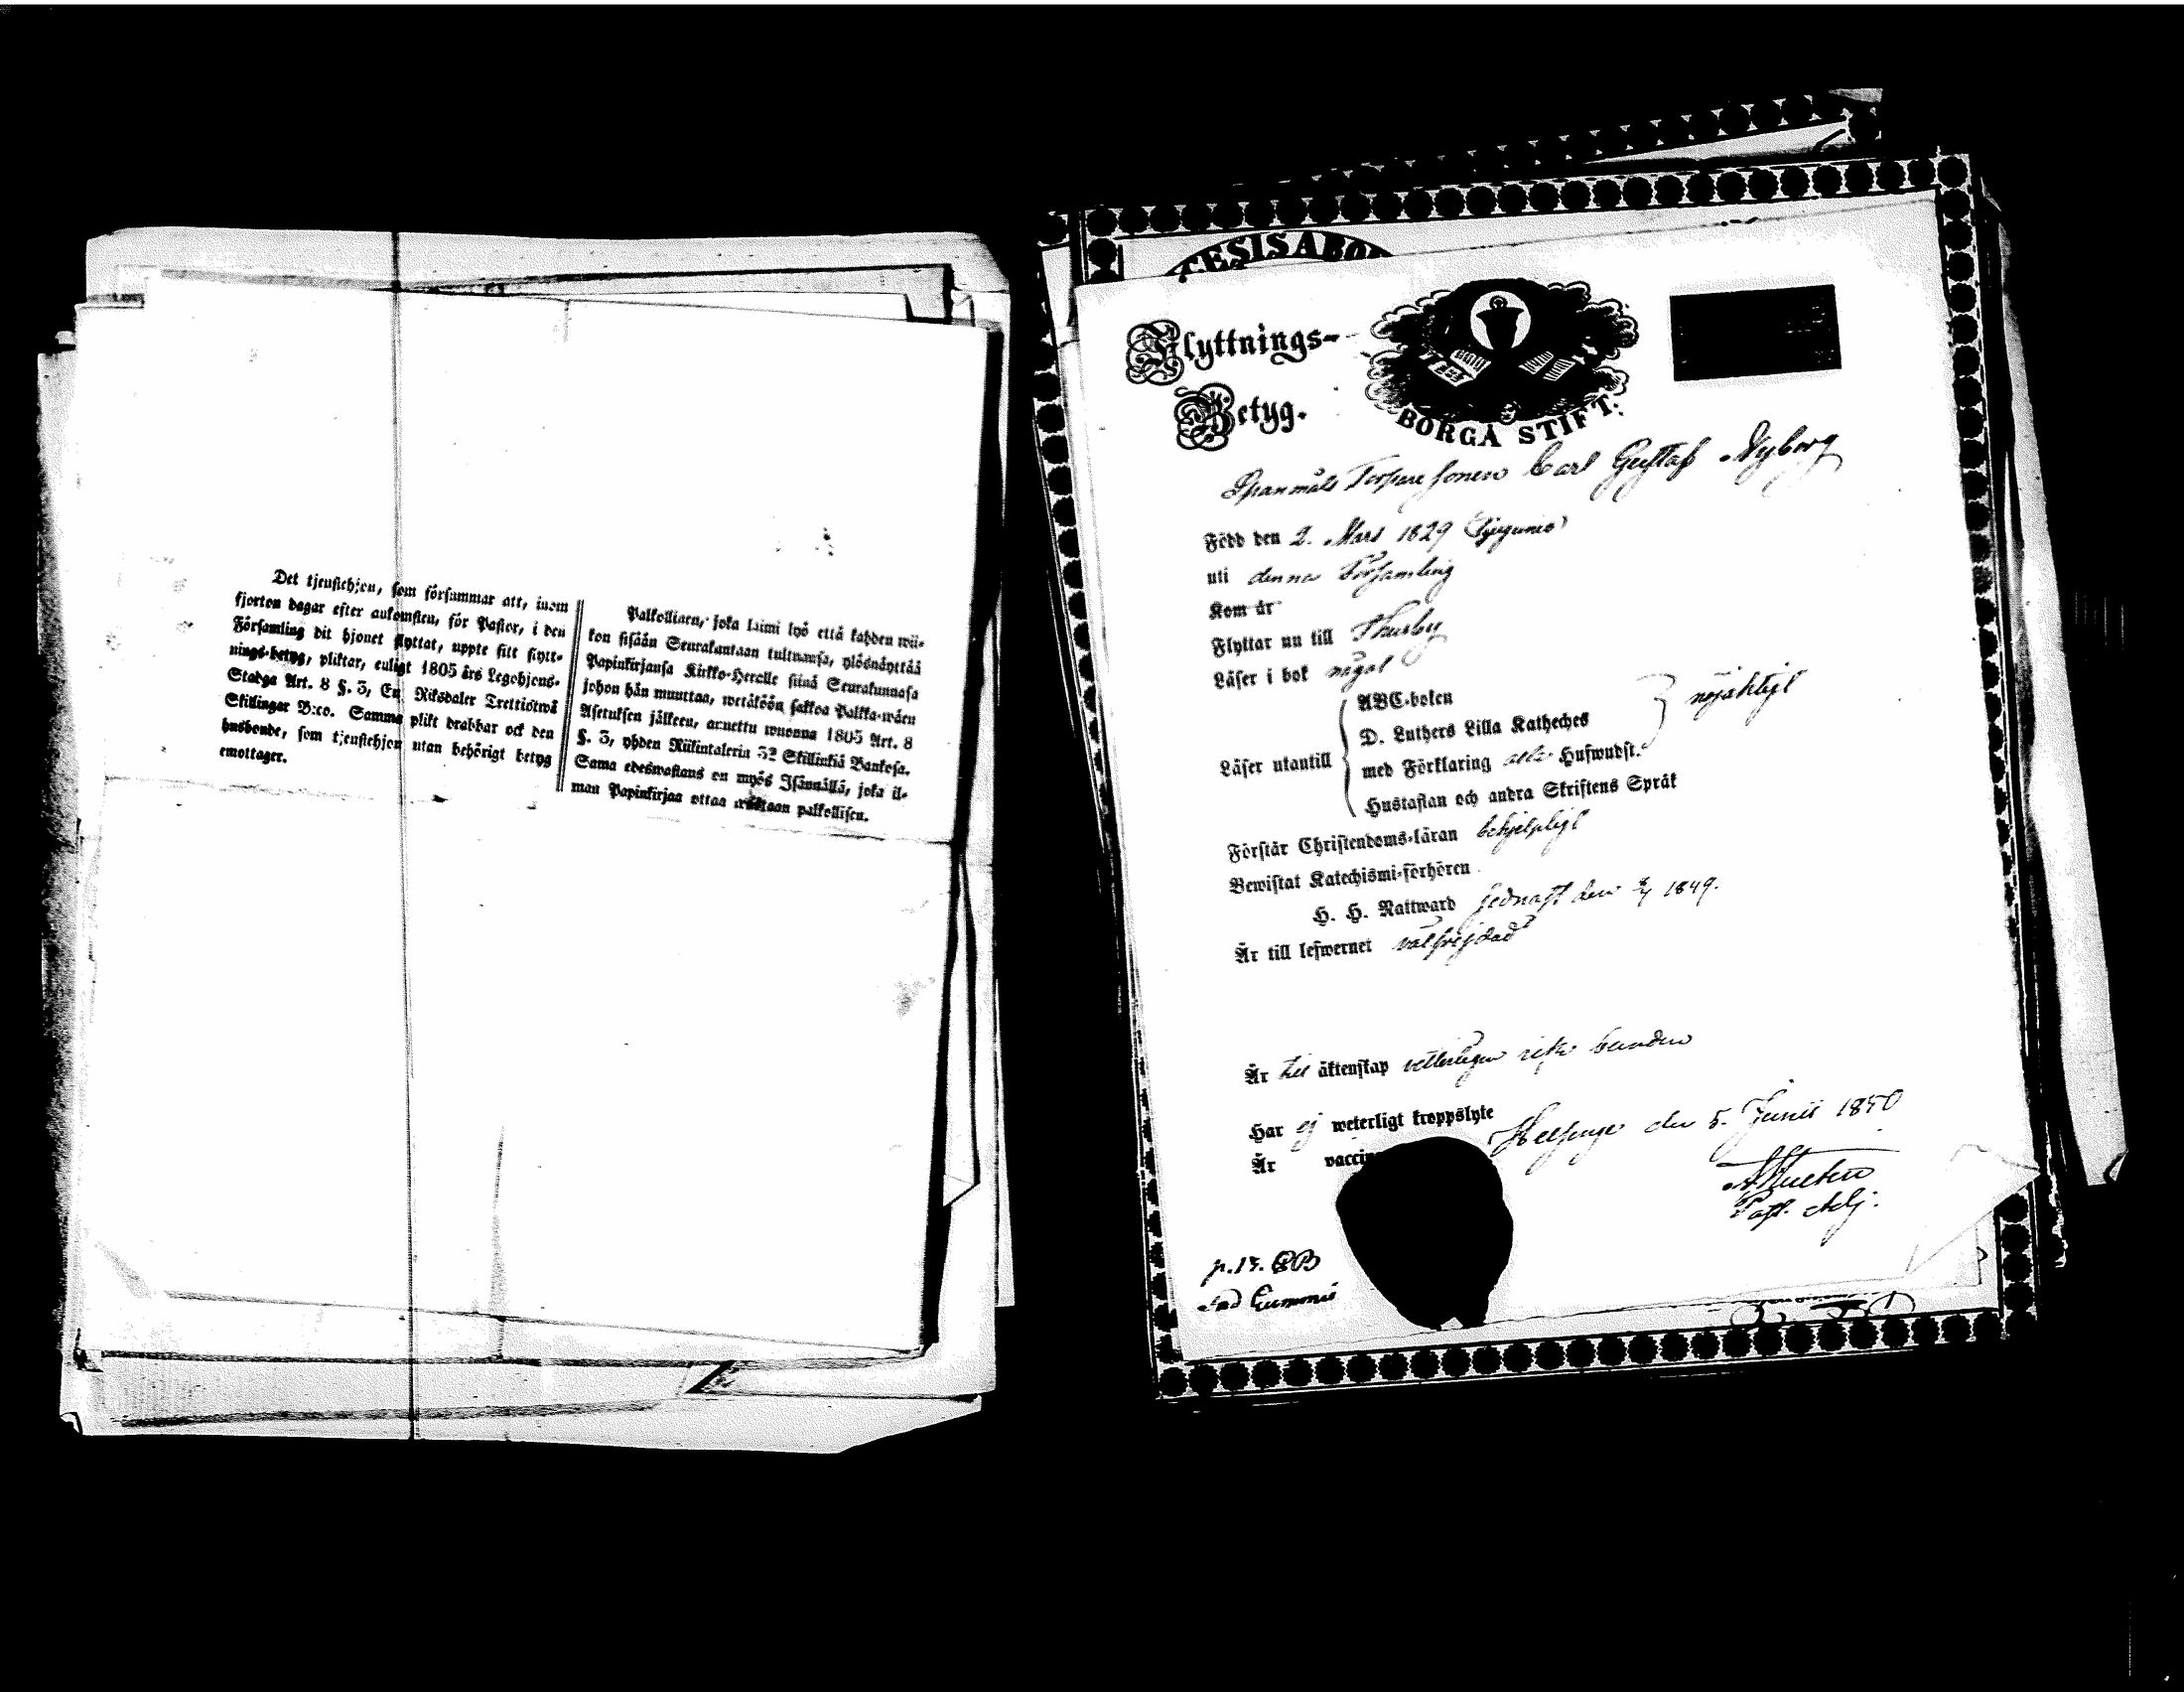 Det tjenstehjon, som försummar att, inom
fjorton dagar efter ankomsten, för Pastor, i den
Församling dit hjonet flyttat, uppte sitt flytt-
nings-betyg, pliktar, enligt 1805 års Legohjons-
Stadga Art. 8 §. 3, En Riksdaler Trettiotwå
Skillingar B:co. Samma plikt drabbar ock den
husbonde, som tjenstehjon utan behörigt betyg
emottager.
Palkollinen, joka laimi lyö että kahden wii-
kon sisään Seurakuntaan tultuansa, ylösnäyttää
Papinkirjansa Kirkko-Herralle siinä Seurakunnasa
johon hän muuttaa, wetäköön sakkoa Palkka-wäen
Asetuksen jälkeen, annettu wuonna 1805 Art. 8
§. 3, yhden Riikintalerin 32 Skillinkiä Bankosa.
Sama edeswastaus on myös Isännällä, joka il-
man Papinkirjaa ottaa wastaan palkollisen.
TESIS ABO
Flyttnings-
Betyg.
BORGÅ STIFT.
Spanmåls Torpare sonen Carl Gustaf Nyborg
Född den 2. Mars 1829
uti denna Församling
Kom år
Flyttar nu till Thusby
Läser i bok något
Läser utantill
ABC-boken
D. Luthers Lilla Katheches
med Förklaring alla Hufwudst.
Hustaflan och andra Skriftens Språk
nöjaktigt
Förstår Christendoms-läran behjelpligt
Bewistat Katechismi-förhören
H. H. Nattward sednast den 1849.
Är till lefwernet välfrejdad
Är till äktenskap vetterligen icke bunden
Har ej weterligt kroppslyte
Är vacci
Helsinge den 5. Junii 1850
Past. Adj.
p. 15.